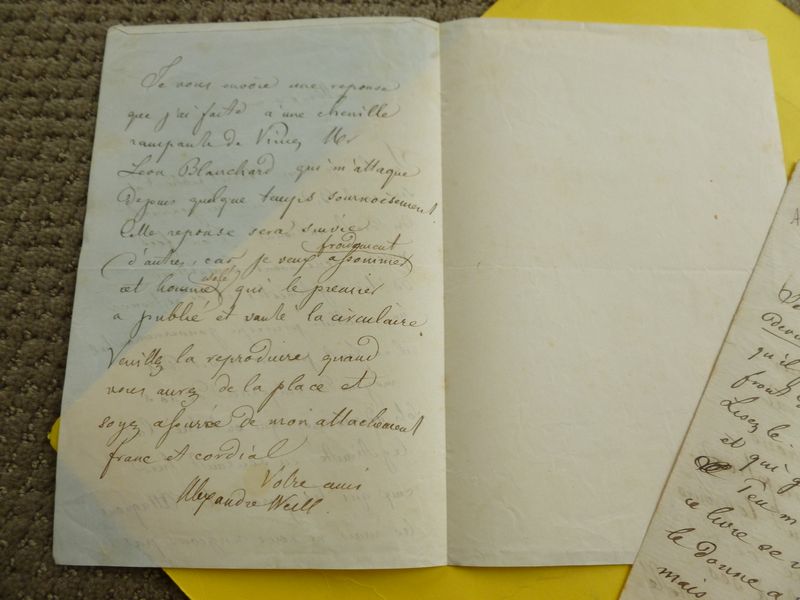 Je vous envoie une reponse
que j'ai faite à une chenille
rampante de Vinez Mr
Léon Blanchard qui m'attaque
Depuis quelque temps sournoisement.
Ma reponse sera suivie
froidement
d'autres, car je veux assommer
cet homme qui le premier
a publié et vanté la circulaire.
Veuillez la reproduire quand
vous aurez de la place et
soyez assurée de mon attachement
franc et cordial
Votre ami
Alexandre Weill.
A
qu'il
front
Lisez le
et qui
ce livre se
le Donne a
mais